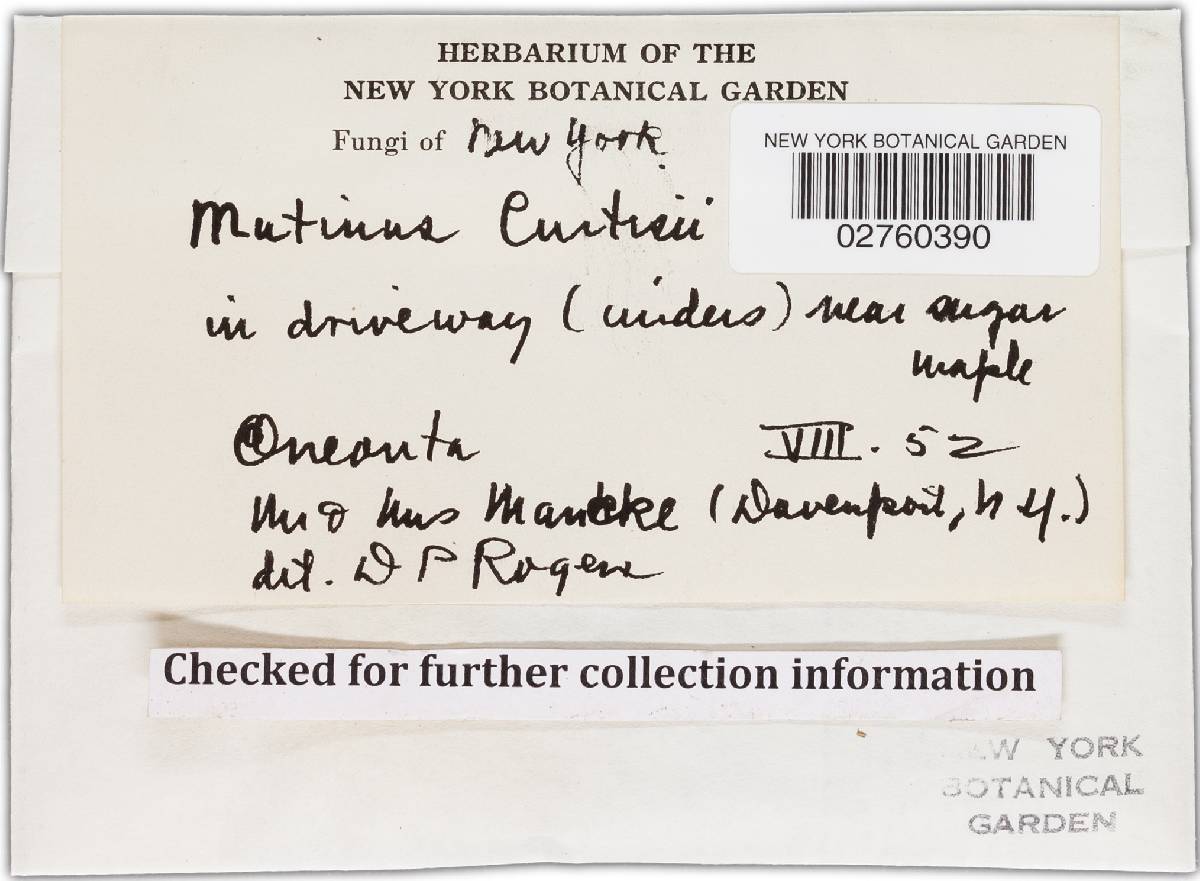 HERBARIUM OF THE
NEW YORK BOTANICAL GARDEN
Fungi of New York
NEW YORK BOTANICAL GARDEN
02760390
Mutinus Curtisii
in driveway (cinders) near sugar
maple
Oneonta VIII. 52
Mr & Mrs Manckke (Davenport, N Y.)
det. D P Rogers
Checked for further collection information
NEW YORK
BOTANICAL
GARDEN